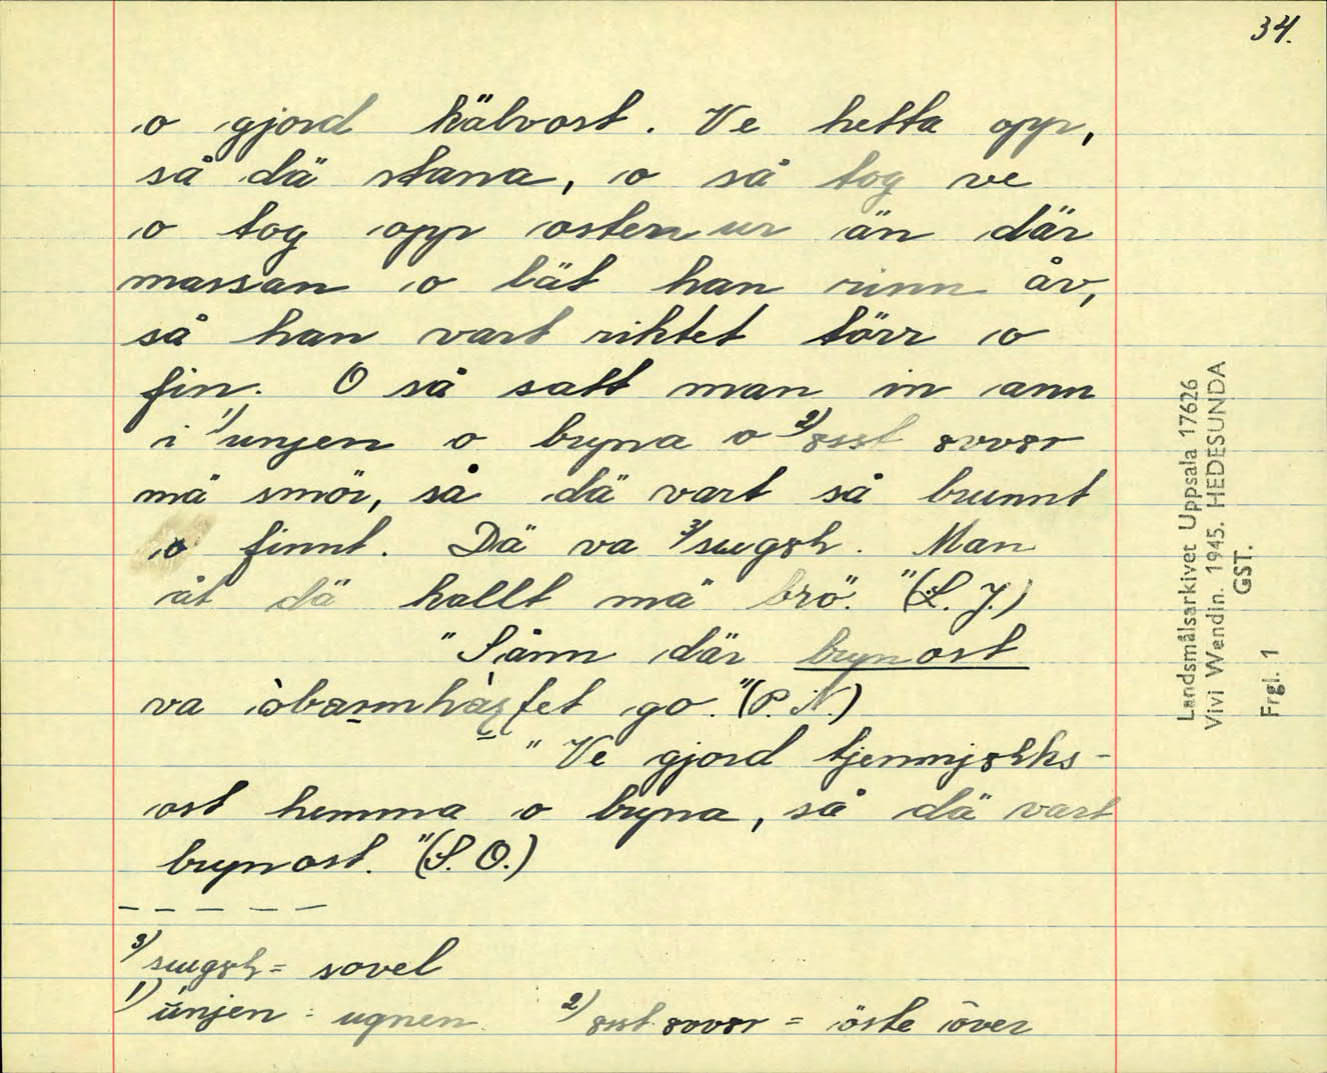 34.
o gjord kälvost. Ve hetta opp,
så dä stana, o så tog ve
o tog opp osten ur än där
massan o lät han rinn åv,
så han vart riktet törr o
fin. O så satt man in ann
i ¹⁾unjen o bryna o ²⁾ȣsst ȣvvȣr
mä smör, så dä vart så brunnt
o finnt. Dä va ³⁾
Man
åt dä kallt mä brö." (L. J.)
"Sånn där brynost
va
go." (P. N.)
"Ve gjord tjennmjȣlks-
ost hemma o bryna, så dä vart
brynost." (S. O.)
- - - - -
= sovel
¹⁾ únjen = ugnen. ²⁾ ȣsst ȣvvȣr = öste över
Landsmålsarkivet Uppsala 17626
Vivi Wendin. 1945. HEDESUNDA
GST.
Frgl. 1